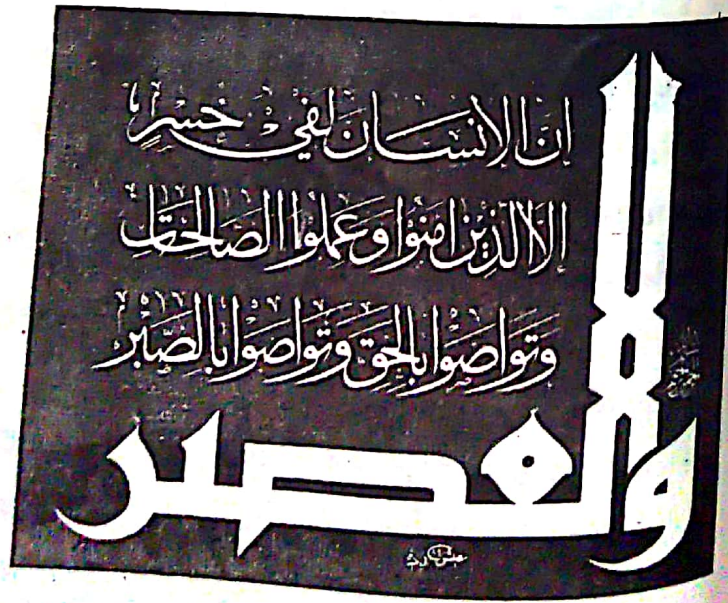 والعصر
ان الانسان لفي خسر
الا الذين امنوا وعملوا الصالحات
وتواصوا بالحق وتواصوا بالصبر